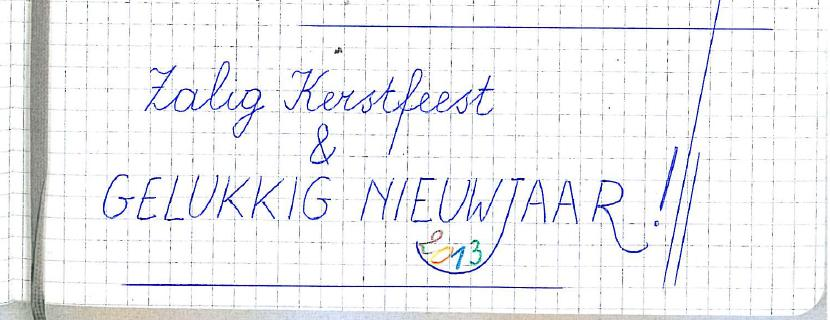 Zalig Kerstfeest
&
GELUKKIG NIEUWJAAR!
2013